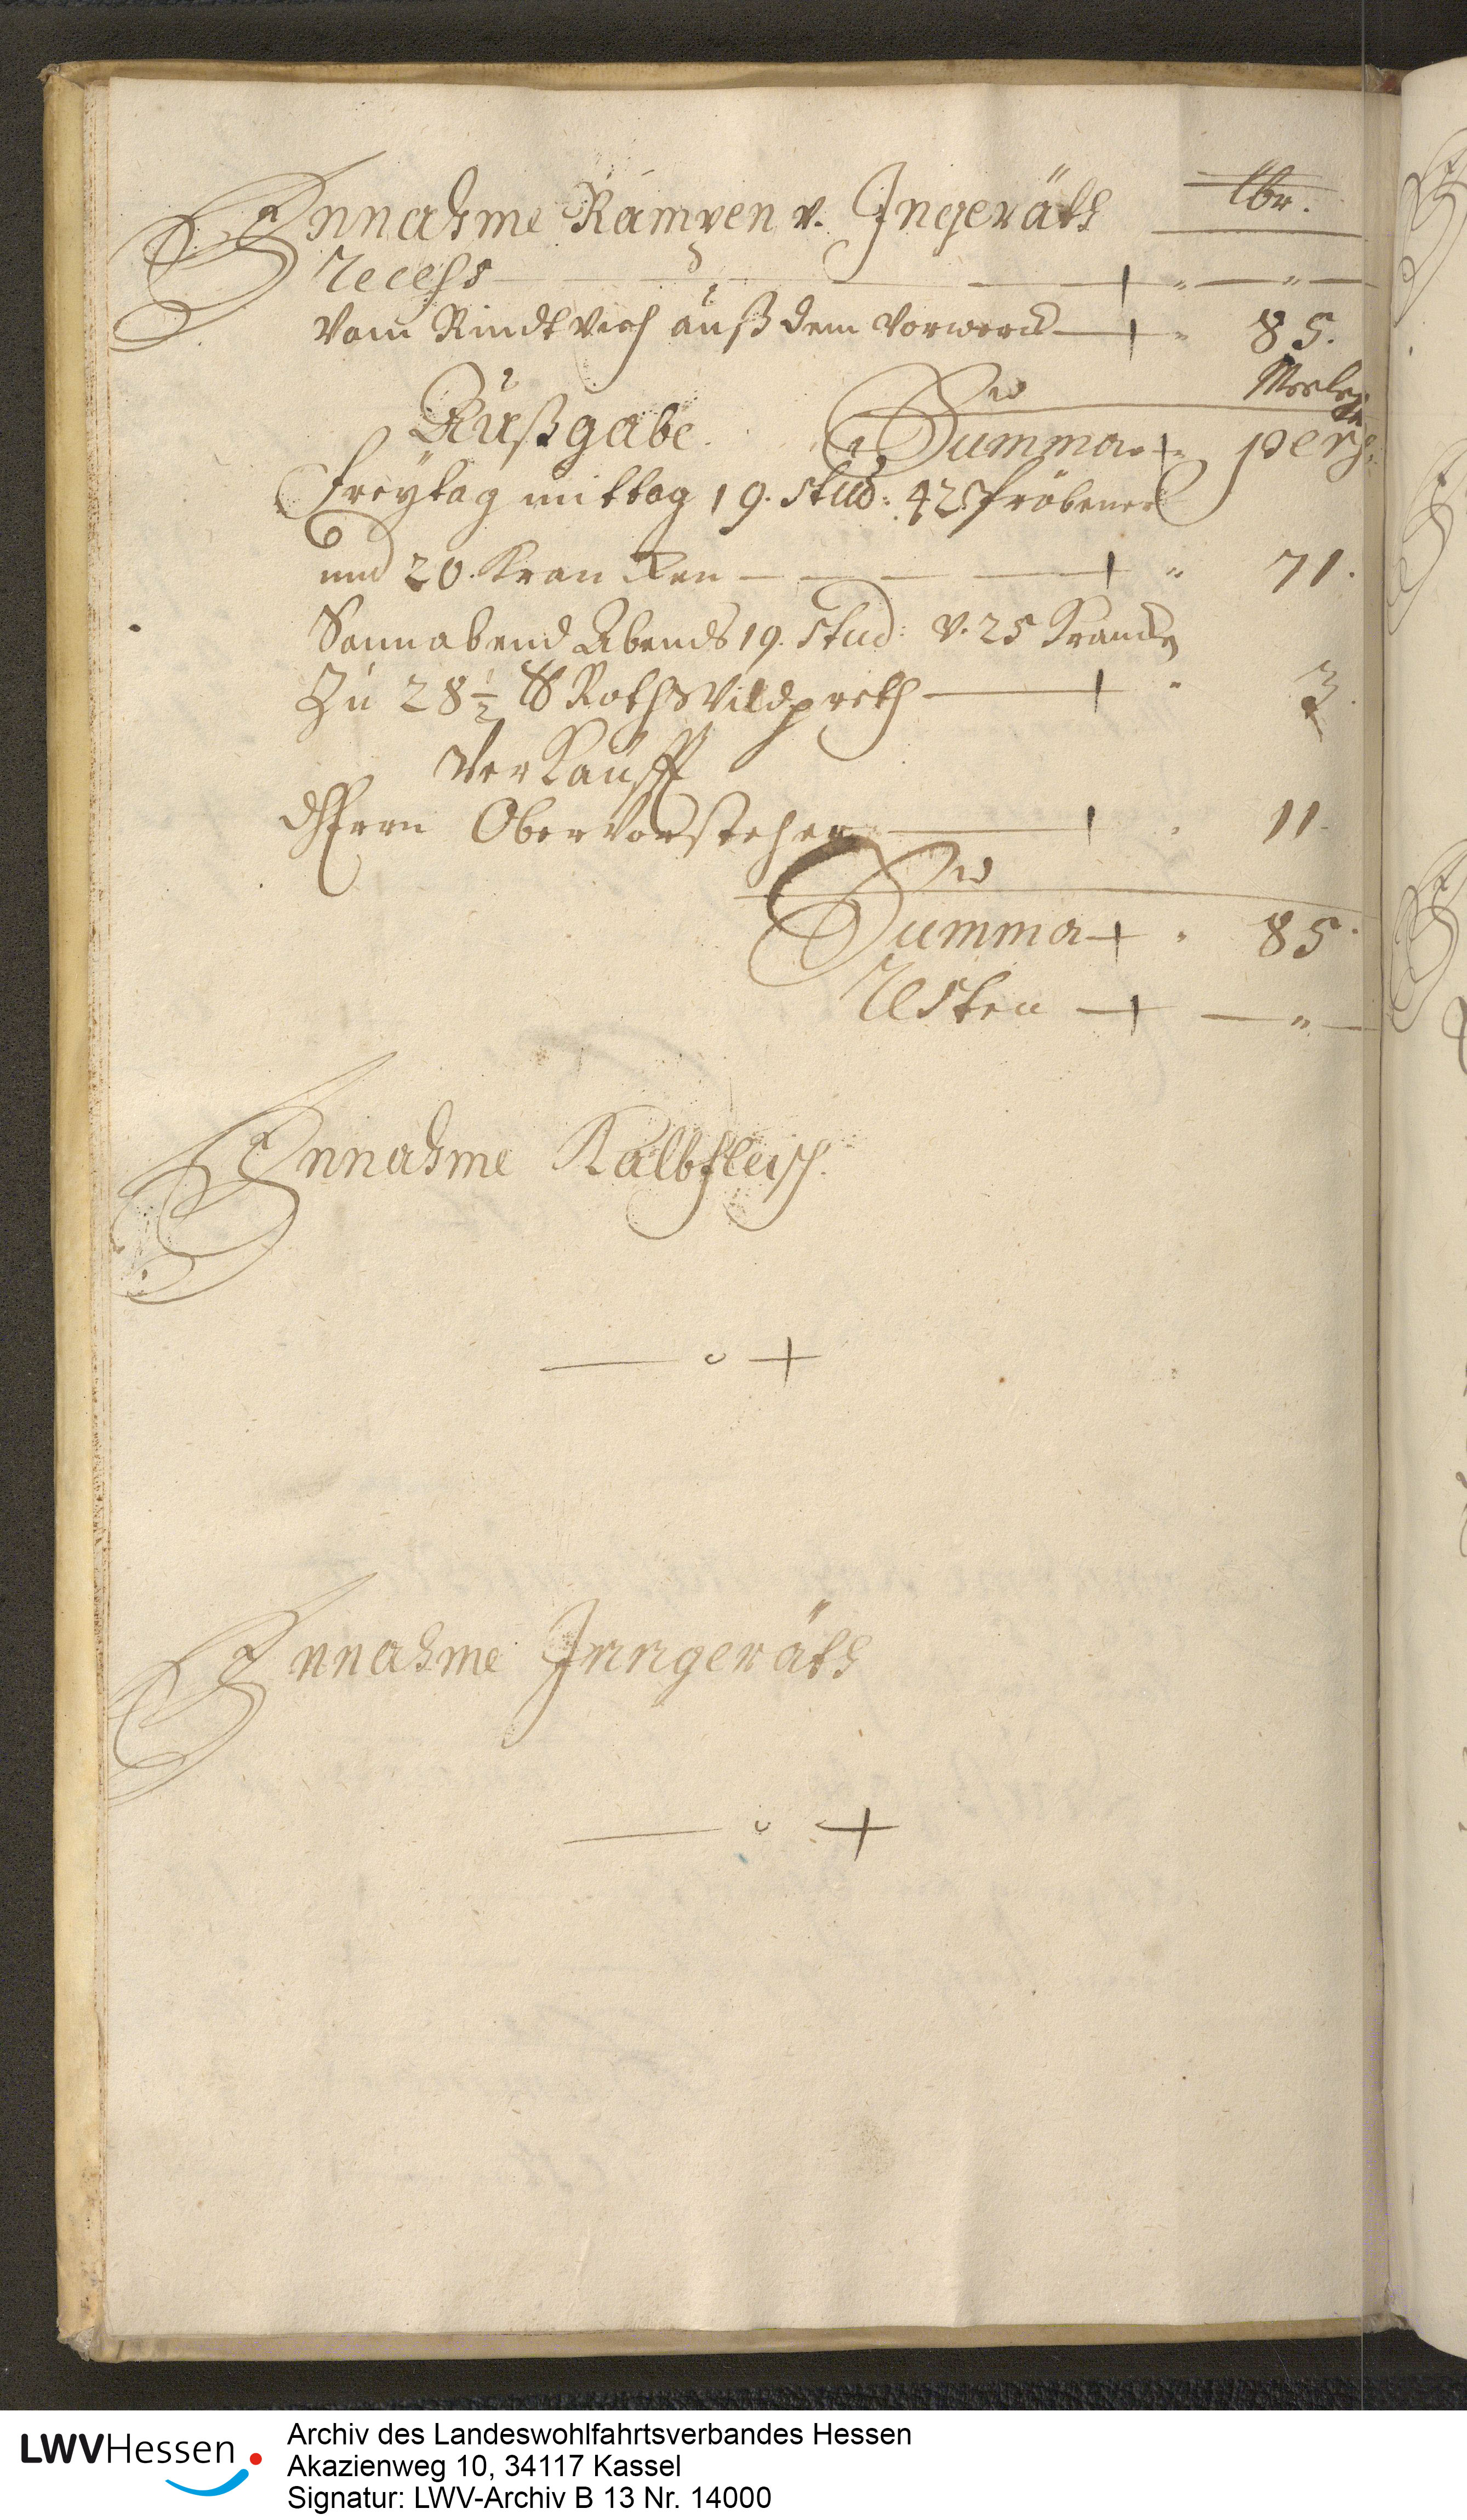 Einnahme Kampen v. Ingeräth
lbr.
Recess
Vom Rindtvieh auß dem vorwerck 85.
Außgabe.
Summa per s:
Freytag mittag 19. stud: 42 Pröbener
und 20. Krancken 71.
Sonnabend Abends 19. stud: v. 25 Krancken
Zu 28 1/2 lb Rothwildpreth 3.
Verkaufft
dH Herrn Obervorsteher 11.
Summa 85.
Resten
Einnahme Kalbfleisch.
Einnahme Inngeräth
LWVHessen
Archiv des Landeswohlfahrtsverbandes Hessen
Akazienweg 10, 34117 Kassel
Signatur: LWV-Archiv B 13 Nr. 14000